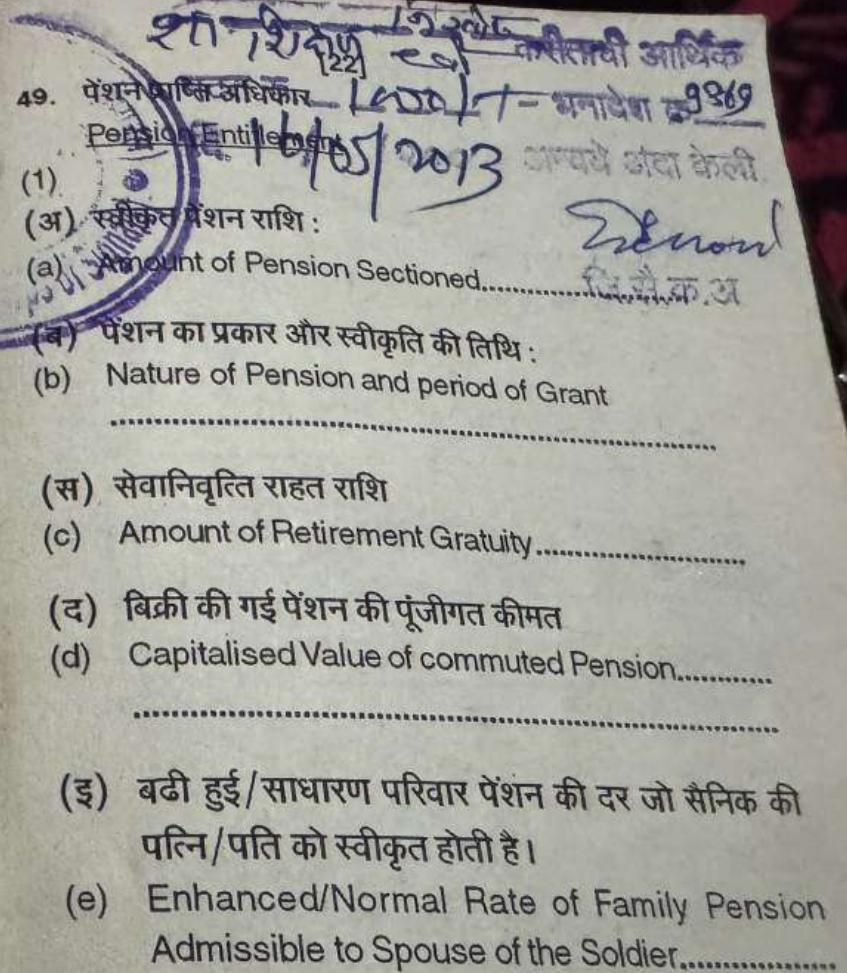 करीताची आर्थिक
49. पेंशन प्राप्ति अधिकार
धनादेश क्र 9369
Pension Entitlement
2013 अन्वये अदा केली
(1)
(अ) स्वीकृत पेंशन राशि :
(a) Amount of Pension Sectioned....................
जि.सै.क.अ
(ब) पेंशन का प्रकार और स्वीकृति की तिथि :
(b) Nature of Pension and period of Grant
....................................................................
(स) सेवानिवृत्ति राहत राशि
(c) Amount of Retirement Gratuity....................
(द) बिक्री की गई पेंशन की पूंजीगत कीमत
(d) Capitalised Value of commuted Pension............
....................................................................
(इ) बढी हुई/साधारण परिवार पेंशन की दर जो सैनिक की
पत्नि/पति को स्वीकृत होती है।
(e) Enhanced/Normal Rate of Family Pension
Admissible to Spouse of the Soldier................